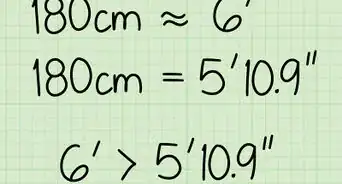 180cm ≈ 6'
180cm = 5'10.9"
6' > 5'10.9"